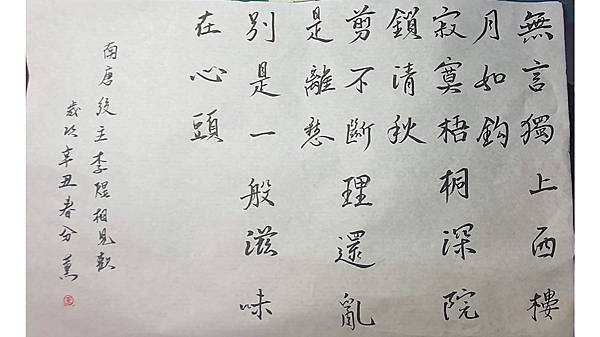 無言獨上西樓
月如鈎
寂寞梧桐深院
鎖清秋
剪不斷理還亂
是離愁
別是一般滋味
在心頭
南唐後主李煜相見歡
歲次辛丑春分 薰